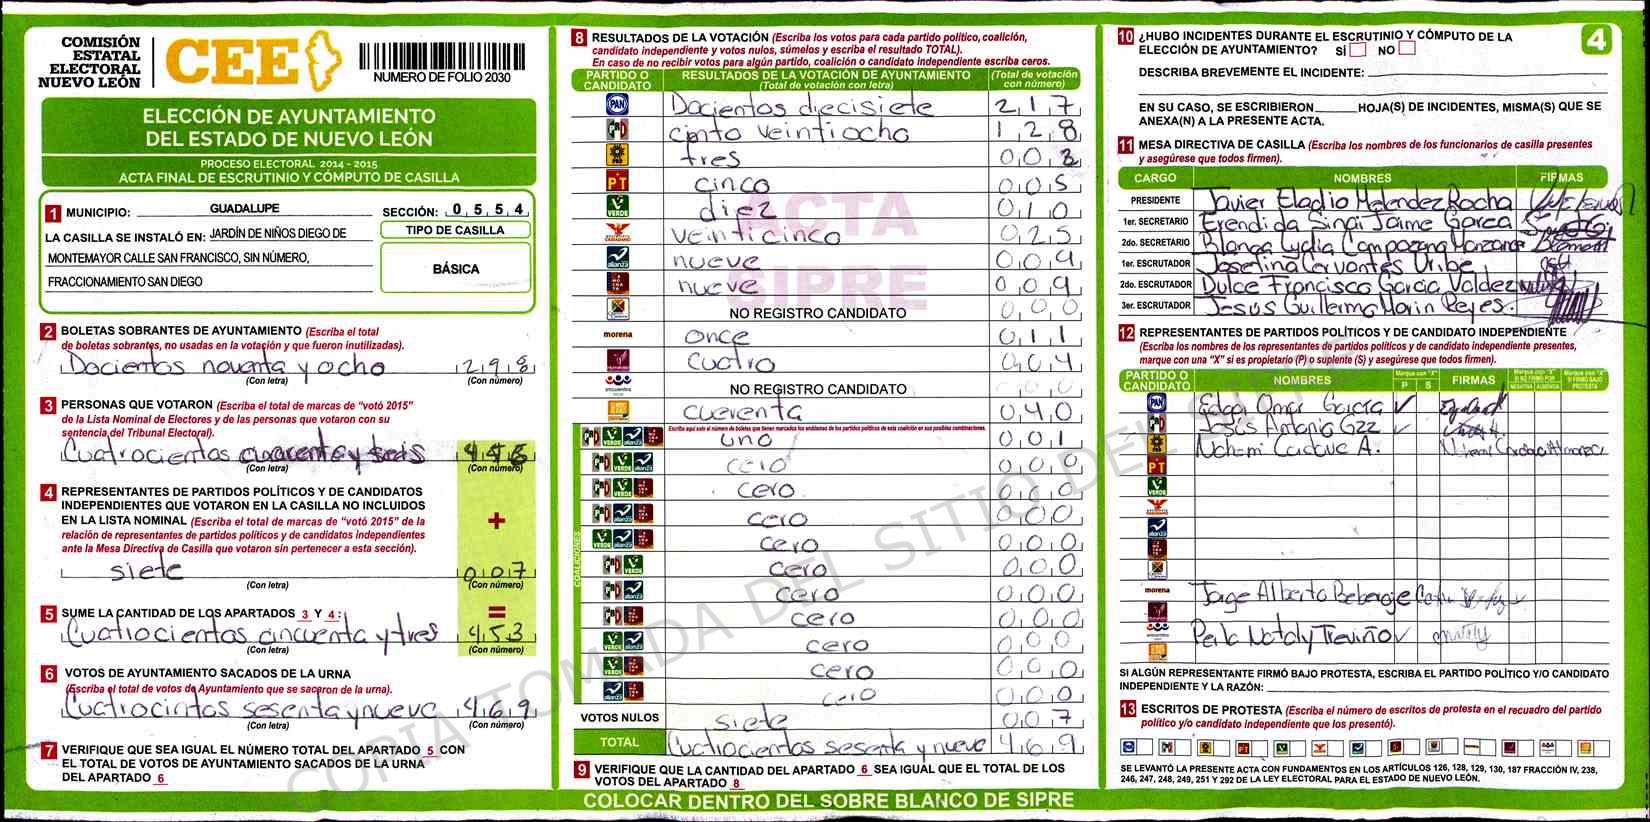 COMISIÓN
ESTATAL
ELECTORAL
NUEVO LEÓN
CEE
NUMERO DE FOLIO 2030
ELECCIÓN DE AYUNTAMIENTO
DEL ESTADO DE NUEVO LEÓN
PROCESO ELECTORAL 2014 - 2015
ACTA FINAL DE ESCRUTINIO Y CÓMPUTO DE CASILLA
1 MUNICIPIO: GUADALUPE SECCIÓN: 0 5 5 4
LA CASILLA SE INSTALÓ EN: JARDÍN DE NIÑOS DIEGO DE
MONTEMAYOR CALLE SAN FRANCISCO, SIN NÚMERO,
FRACCIONAMIENTO SAN DIEGO
TIPO DE CASILLA
BÁSICA
2 BOLETAS SOBRANTES DE AYUNTAMIENTO (Escriba el total
de boletas sobrantes, no usadas en la votación y que fueron inutilizadas).
Docientos noventa y ocho 2 9 8
(Con letra) (Con número)
3 PERSONAS QUE VOTARON (Escriba el total de marcas de “votó 2015”
de la Lista Nominal de Electores y de las personas que votaron con su
sentencia del Tribunal Electoral).
Cuatrocientos cuarenta y seis 4 4 6
(Con letra) (Con número)
4 REPRESENTANTES DE PARTIDOS POLÍTICOS Y DE CANDIDATOS
INDEPENDIENTES QUE VOTARON EN LA CASILLA NO INCLUIDOS
EN LA LISTA NOMINAL (Escriba el total de marcas de “votó 2015” de la
relación de representantes de partidos políticos y de candidatos independientes
ante la Mesa Directiva de Casilla que votaron sin pertenecer a esta sección).
+
siete 0 0 7
(Con letra) (Con número)
=
5 SUME LA CANTIDAD DE LOS APARTADOS 3 Y 4:
Cuatrocientos cincuenta y tres 4 5 3
(Con letra) (Con número)
6 VOTOS DE AYUNTAMIENTO SACADOS DE LA URNA
(Escriba el total de votos de Ayuntamiento que se sacaron de la urna).
Cuatrocintos sesenta y nueve 4 6 9
(Con letra) (Con número)
7 VERIFIQUE QUE SEA IGUAL EL NÚMERO TOTAL DEL APARTADO 5 CON
EL TOTAL DE VOTOS DE AYUNTAMIENTO SACADOS DE LA URNA
DEL APARTADO 6
8 RESULTADOS DE LA VOTACIÓN (Escriba los votos para cada partido político, coalición,
candidato independiente y votos nulos, súmelos y escriba el resultado TOTAL).
En caso de no recibir votos para algún partido, coalición o candidato independiente escriba ceros.
PARTIDO O CANDIDATO RESULTADOS DE LA VOTACIÓN DE AYUNTAMIENTO (Total de votación con letra) (Total de votación con número)
PAN Docientos diecisiete 2 1 7
PRI cinto veintiocho 1 2 8
PRD tres 0 0 3
PT cinco 0 0 5
VERDE diez 0 1 0
veinticinco 0 2 5
nueve 0 0 9
nueve 0 0 9
NO REGISTRO CANDIDATO 0 0 0
morena once 0 1 1
cuatro 0 0 4
NO REGISTRO CANDIDATO 0 0 0
cuerenta 0 4 0
Escriba aquí solo el número de boletas que tienen marcados los emblemas de los partidos políticos de esta coalición en sus posibles combinaciones.
uno 0 0 1
cero 0 0 0
cero 0 0 0
cero 0 0 0
cero 0 0 0
cero 0 0 0
cero 0 0 0
cero 0 0 0
cero 0 0 0
cero 0 0 0
cero 0 0 0
COALICIONES
VOTOS NULOS siete 0 0 7
TOTAL Cuatrocientos sesenta y nueve 4 6 9
9 VERIFIQUE QUE LA CANTIDAD DEL APARTADO 6 SEA IGUAL QUE EL TOTAL DE LOS
VOTOS DEL APARTADO 8
ACTA
SIPRE
COPIA TOMADA DEL SITIO DEL SIPRE
COLOCAR DENTRO DEL SOBRE BLANCO DE SIPRE
4
10 ¿HUBO INCIDENTES DURANTE EL ESCRUTINIO Y CÓMPUTO DE LA
ELECCIÓN DE AYUNTAMIENTO? SÍ NO
DESCRIBA BREVEMENTE EL INCIDENTE:
EN SU CASO, SE ESCRIBIERON HOJA(S) DE INCIDENTES, MISMA(S) QUE SE
ANEXA(N) A LA PRESENTE ACTA.
11 MESA DIRECTIVA DE CASILLA (Escriba los nombres de los funcionarios de casilla presentes
y asegúrese que todos firmen).
CARGO NOMBRES FIRMAS
PRESIDENTE Javier Eladio Melendez Rocha
1er. SECRETARIO Erendida Sinai Jaime Garca
2do. SECRETARIO Blanca Lydia Campozano Manzano
1er. ESCRUTADOR Josefina Cervantes Uribe
2do. ESCRUTADOR Dulce Francisco Garcia Valdez
3er. ESCRUTADOR Jesús Guillermo Morin Reyes.
12 REPRESENTANTES DE PARTIDOS POLÍTICOS Y DE CANDIDATO INDEPENDIENTE
(Escriba los nombres de los representantes de partidos políticos y de candidato independiente presentes,
marque con una “X” si es propietario (P) o suplente (S) y asegúrese que todos firmen).
PARTIDO O CANDIDATO NOMBRES Marque con “X” P S FIRMAS Marque con “X” SI NO FIRMÓ POR NEGATIVA AUSENCIA Marque con “X” SI FIRMÓ BAJO PROTESTA
PAN Edgar Omar Garcia
PRI Jesús Antonio Gzz
PRD Nohemi A.
PT
VERDE
morena Jorge Alberto
Perla Nataly Treviño
SI ALGÚN REPRESENTANTE FIRMÓ BAJO PROTESTA, ESCRIBA EL PARTIDO POLÍTICO Y/O CANDIDATO
INDEPENDIENTE Y LA RAZÓN:
13 ESCRITOS DE PROTESTA (Escriba el número de escritos de protesta en el recuadro del partido
político y/o candidato independiente que los presentó).
SE LEVANTÓ LA PRESENTE ACTA CON FUNDAMENTOS EN LOS ARTÍCULOS 126, 128, 129, 130, 187 FRACCIÓN IV, 238,
246, 247, 248, 249, 251 Y 292 DE LA LEY ELECTORAL PARA EL ESTADO DE NUEVO LEÓN.